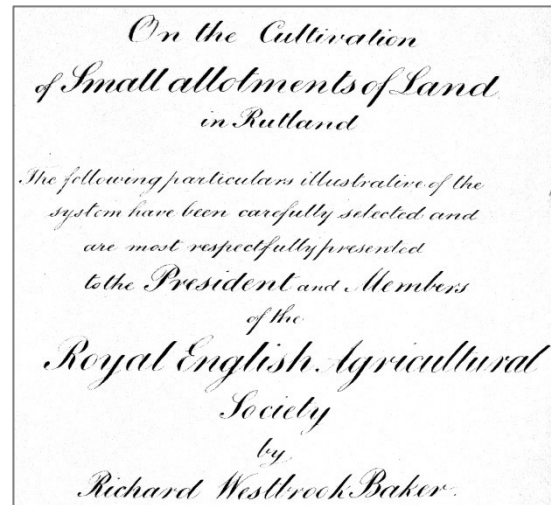 On the Cultivation
of Small allotments of Land
in Rutland
The following particulars illustrative of the
system have been carefully selected and
are most respectfully presented
to the President and Members
of the
Royal English Agricultural
Society
by
Richard Westbrook Baker.